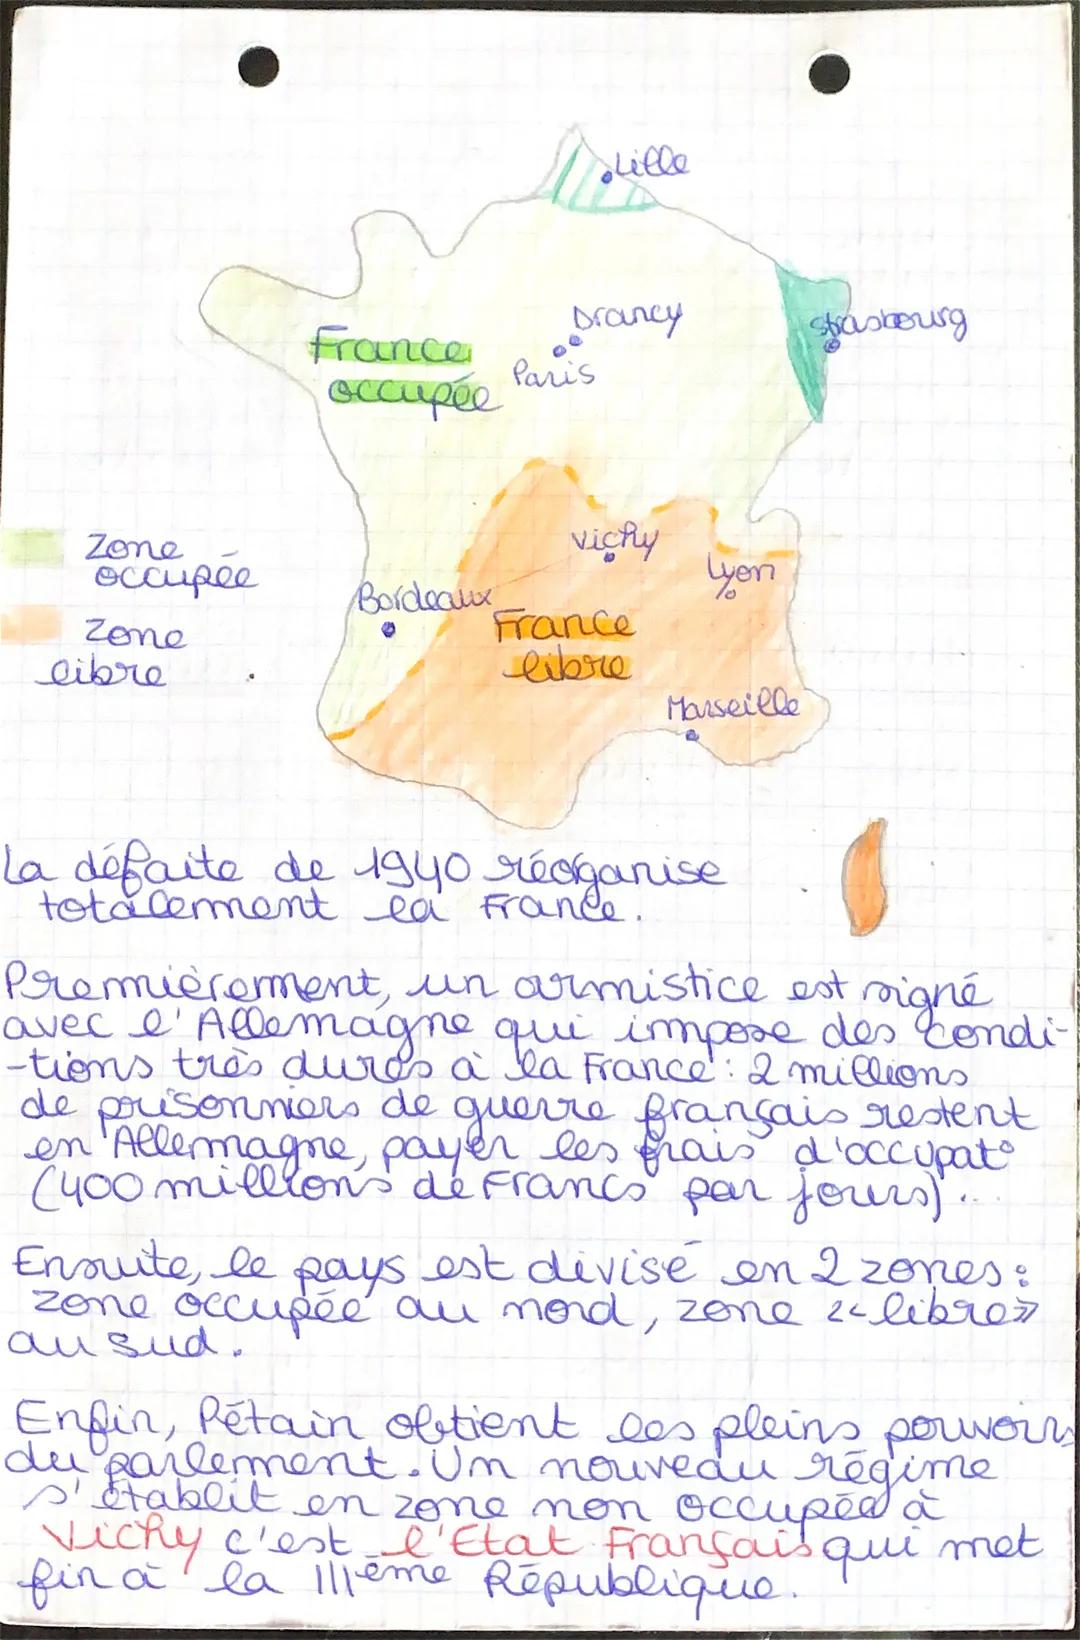 Lille
Drancy
Strasbourg
Paris
France
occupée
Vichy
Lyon
Zone
occupée
Bordeaux
France
libre
Zone
libre
Marseille
La défaite de 1940 réorganise
totalement la France.
Premièrement, un armistice est signé
avec l'Allemagne qui impose des condi-
-tions très dures à la France : 2 millions
de prisonniers de guerre français restent
en Allemagne, payer les frais d'occupat°
(400 millions de Francs par jours)...
Ensuite, le pays est divisé en 2 zones :
zone occupée au nord, zone << libre >>
au sud.
Enfin, Pétain obtient les pleins pouvoirs
du parlement. Un nouveau régime
s'établit en zone non occupée à
Vichy c'est l'Etat Français qui met
fin à la IIIème République.